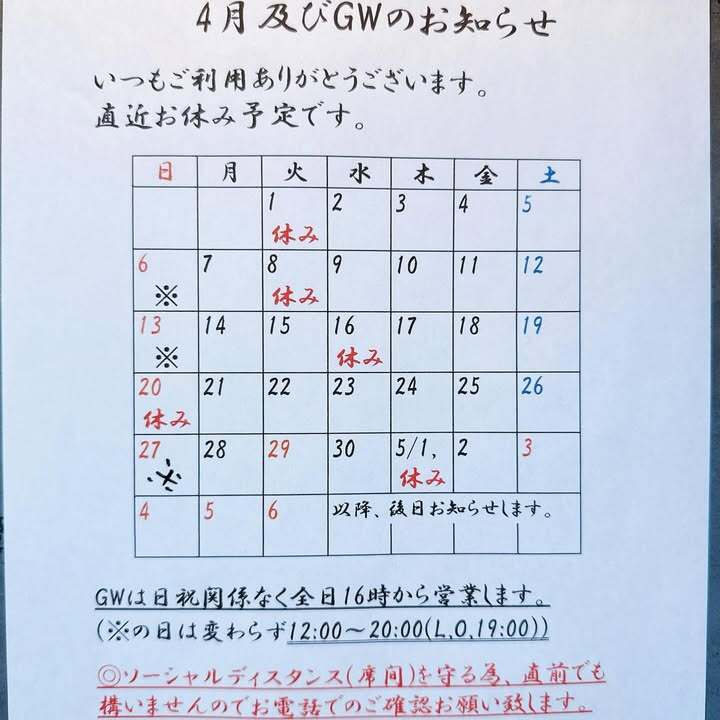 4月及びGWのお知らせ
いつもご利用ありがとうございます。
直近お休み予定です。
日 月 火 水 木 金 土
1 2 3 4 5
休み
6 7 8 9 10 11 12
※ 休み
13 14 15 16 17 18 19
※ 休み
20 21 22 23 24 25 26
休み
27 28 29 30 5/1, 2 3
※ 休み
4 5 6 以降、後日お知らせします。
GWは日祝関係なく全日16時から営業します。
(※の日は変わらず12:00～20:00(L,O,19:00))
◎ソーシャルディスタンス(席間)を守る為、直前でも
構いませんのでお電話でのご確認お願い致します。